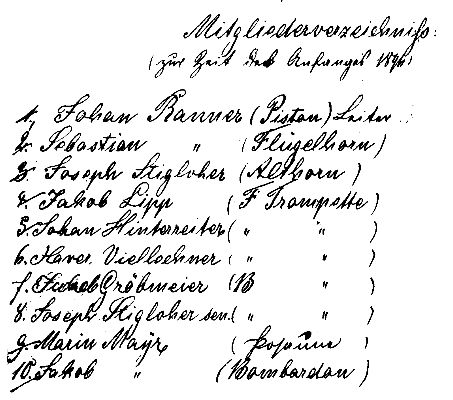 Mitgliederverzeichniss:
(zur Zeit des Anfanges 18)
1, Johan Banner (Piston) Leiter
2. Sebastian " (Flügelhorn)
3. Joseph Stigloher (Althorn)
4. Jakob Lipp (F Trompette)
5. Johan Hinterreiter ( " " )
6. Xaver Viellechner ( " " )
7. Jakob Gröbmeier (B " )
8. Joseph Stigloher sen. ( " " )
9. Marin Mayr (Posaune)
10. Jakob " (Bombardon)